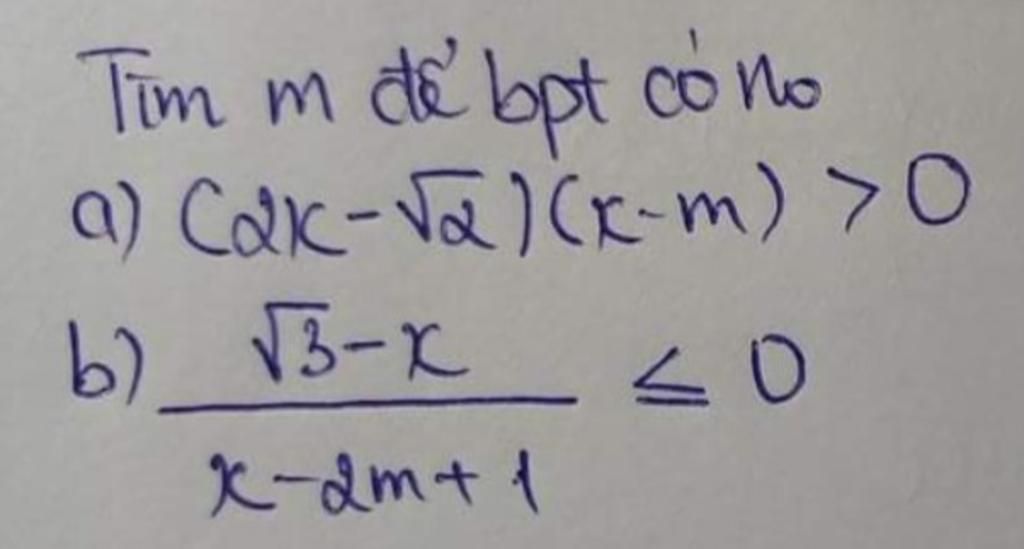 Tìm m để bpt có no
a) (2x-√2)(x-m) > 0
b) √3-x / x-2m+1 ≤ 0